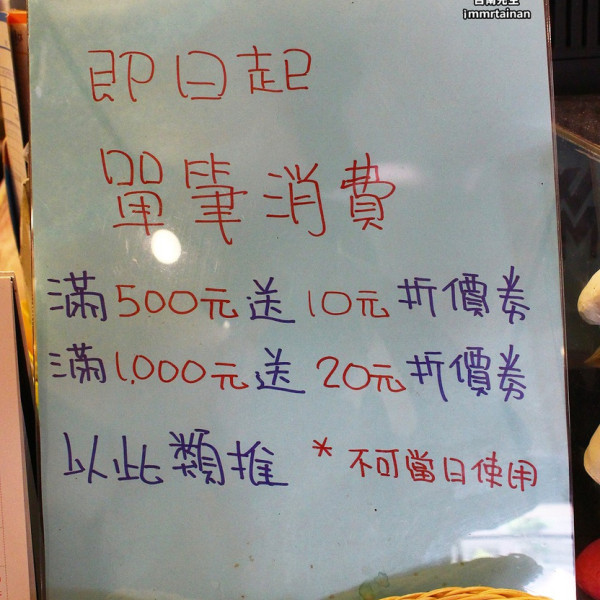 jmmrtainan
即日起
單筆消費
滿500元送10元折價券
滿1,000元送20元折價券
以此類推 *不可當日使用